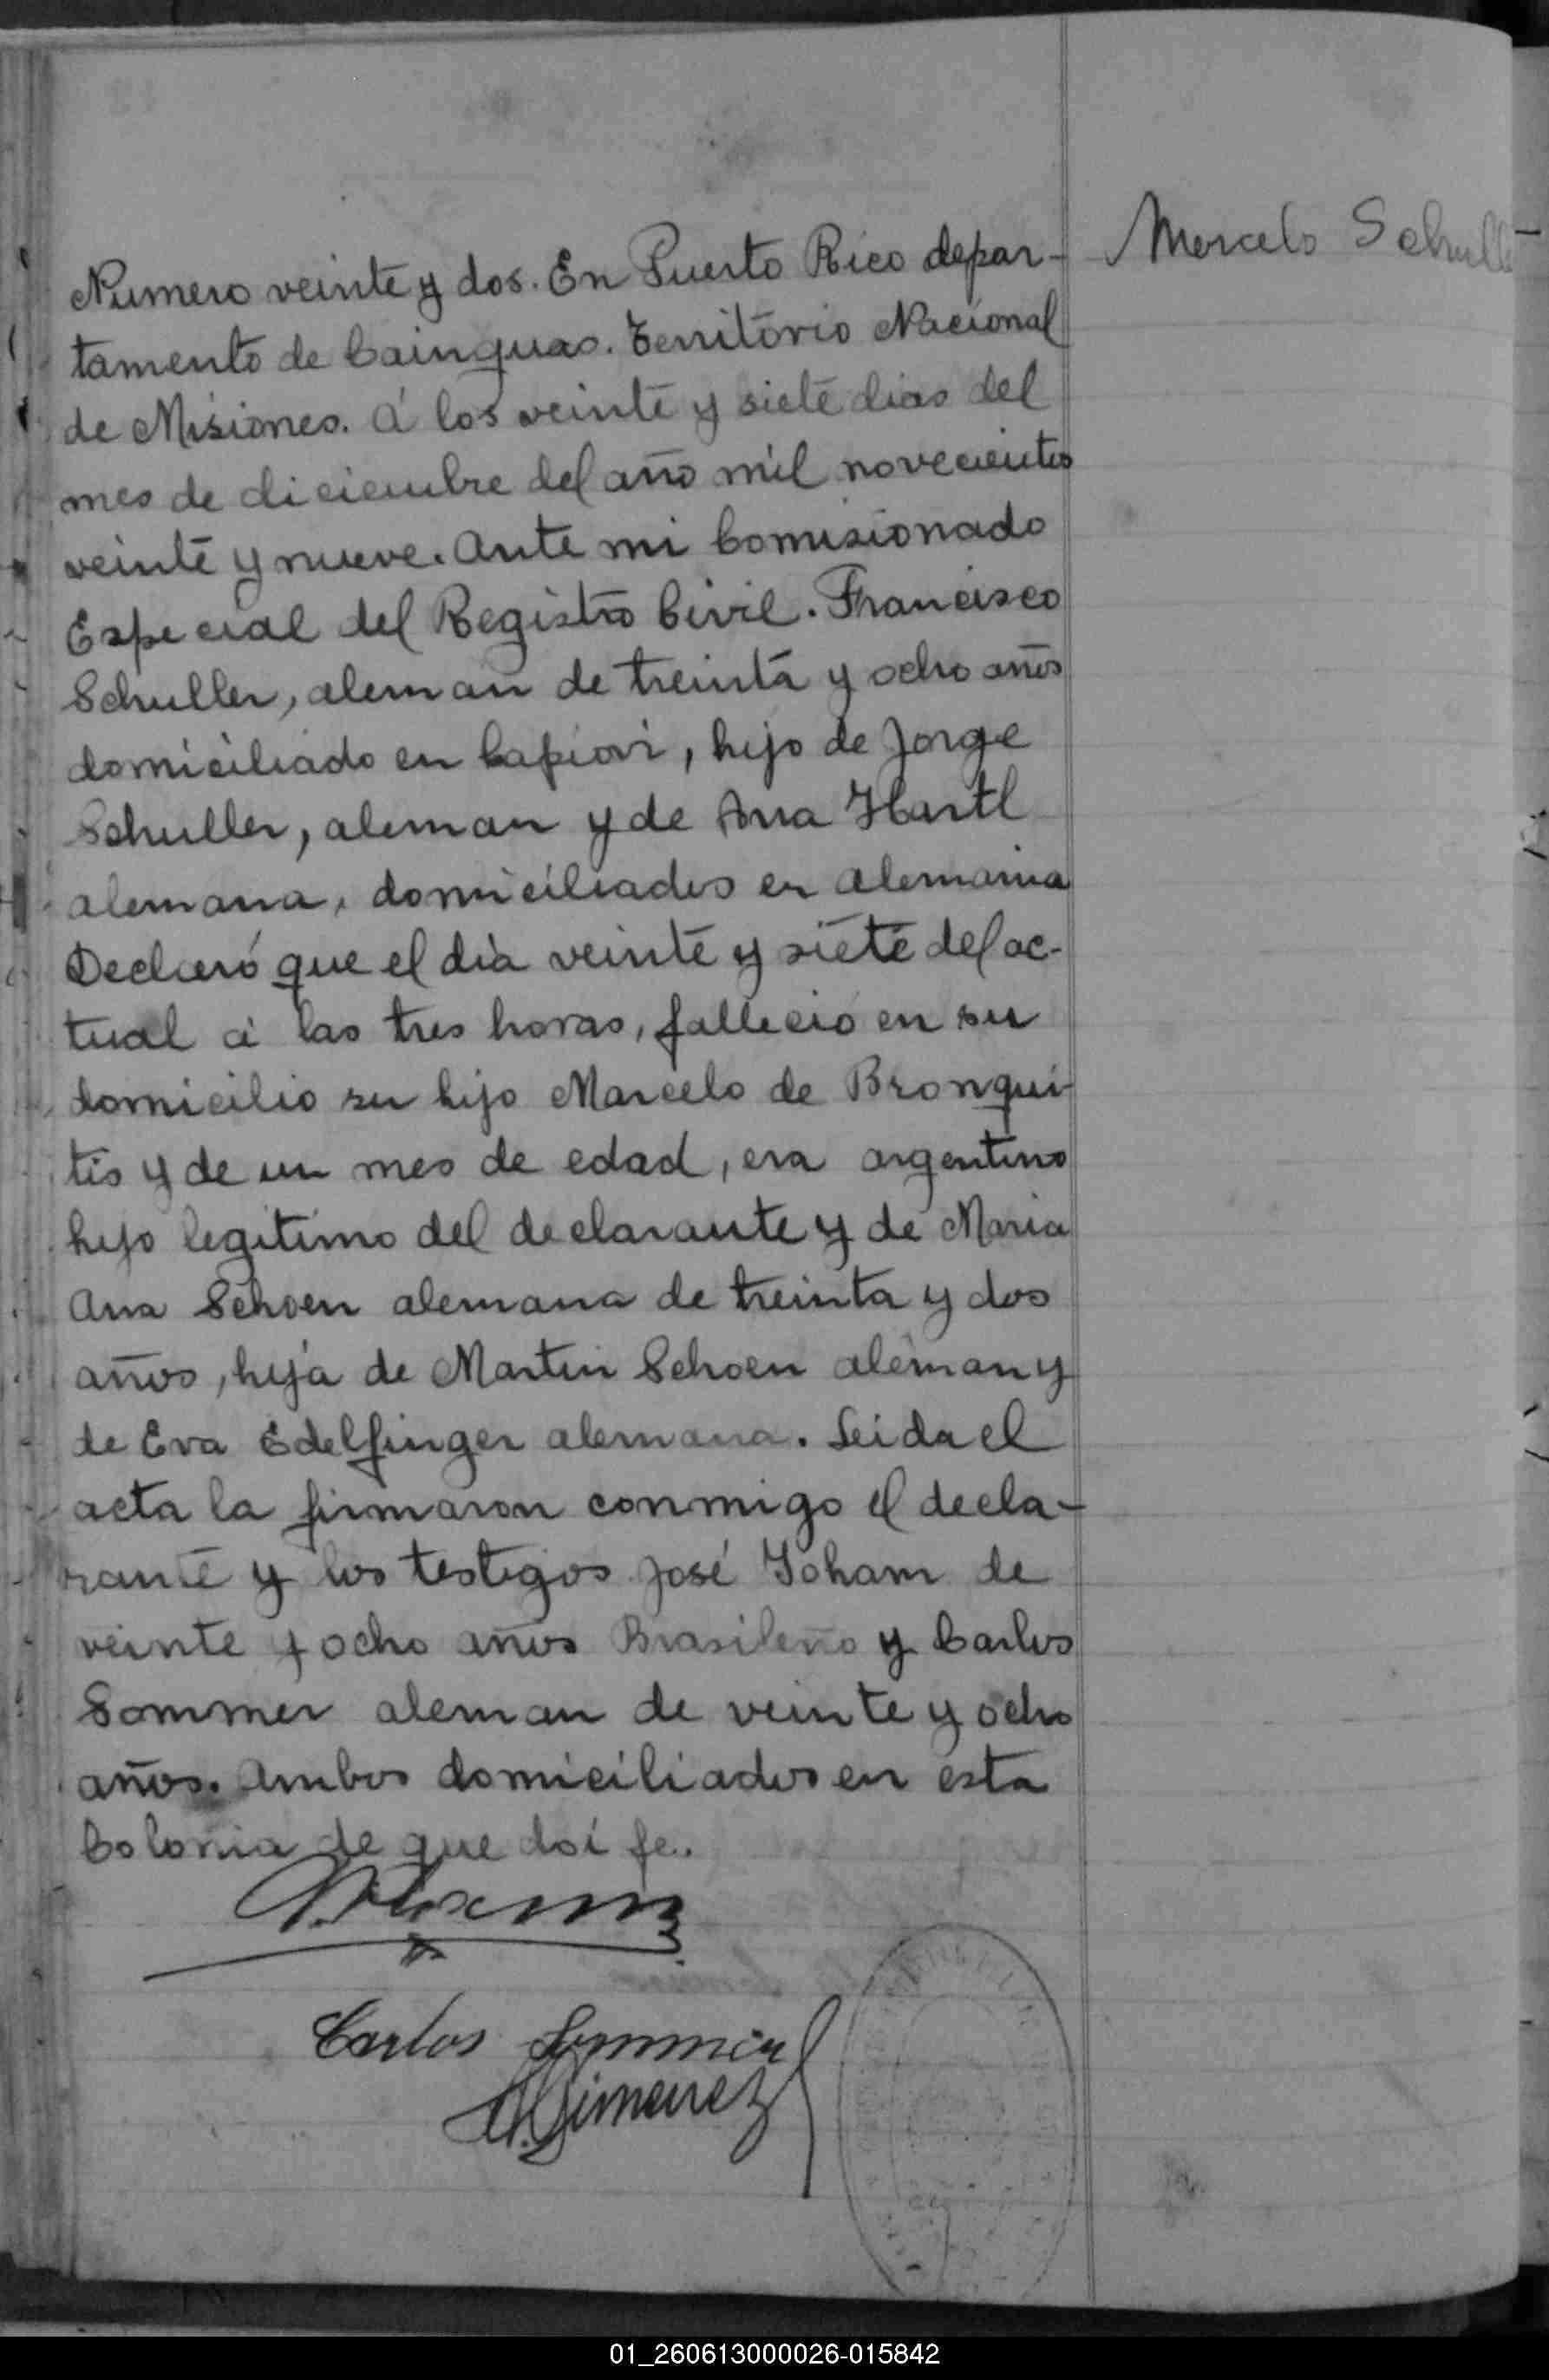 Marcelo Schull
Numero veinte y dos. En Puerto Rico depar-
tamento de Cainguas. Territorio Nacional
de Misiones. á los veinte y siete dias del
mes de diciembre del año mil novecientos
veinte y nueve. Ante mi Comisionado
Especial del Registro Civil. Francisco
Schuller, aleman de treinta y ocho años
domiciliado en Capiovi, hijo de Jorge
Schuller, aleman y de Ana Hartl
alemana, domiciliados en Alemania
Declaró que el dia veinte y siete del ac-
tual á las tres horas, fallecio en su
domicilio su hijo Marcelo de Bronqui-
tis y de un mes de edad, era argentino
hijo legitimo del declarante y de Maria
Ana Schoen alemana de treinta y dos
años, hija de Martin Schoen aleman y
de Eva Edelfinger alemana. Leida el
acta la firmaron conmigo el decla-
rante y los testigos José Joham de
veinte y ocho años Brasileño y Carlos
Sommer aleman de veinte y ocho
años. Ambos domiciliados en esta
Colonia de que doi fe.
Carlos Sommer
Gimenez
01_260613000026-015842